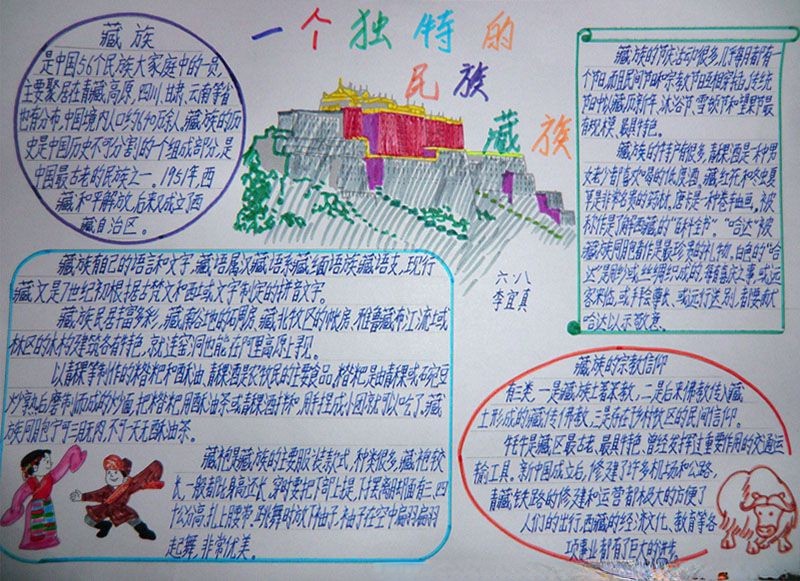 一个独特的
民族
藏族
六·八
李宜真
藏族
是中国56个民族大家庭中的一员,
主要聚居在青藏高原,四川、甘肃、云南等省
也有分布,中国境内人口约640万余人,藏族的历
史是中国历史不可分割的一个组成部分,是
中国最古老的民族之一。1951年,西
藏和平解放,后来又成立了西
藏自治区。
藏族有自己的语言和文字,藏语属汉藏语系藏缅语族藏语支,现行
藏文是7世纪初根据古梵文和西域文字制定的拼音文字。
藏族民居丰富多彩,藏南谷地的碉房、藏北牧区的帐房、雅鲁藏布江流域
林区的木构建筑各有特色,就连窑洞也能在阿里高原上寻见。
以青稞等制作的糌粑和酥油、青稞酒是农牧民的主要食品。糌粑是由青稞或豌豆
炒熟后磨制而成的炒面,把糌粑用酥油茶或青稞酒拌和,用手捏成小团就可以吃了。藏
族同胞宁可三月无肉,不可一天无酥油茶。
藏袍是藏族的主要服装款式,种类很多,藏袍较
长,一般都比身高还长,穿时要把下部上提,下摆离脚面有三、四
十公分高,扎上腰带。跳舞时放下袖子,袖子在空中翩翩
起舞,非常优美。
藏族的节庆活动很多,几乎每月都有一
个节日,而且民间节日和宗教节日互相穿插,传统
节日中以藏历新年、沐浴节、雪顿节和望果节最
有规模、最具特色。
藏族的特产有很多,青稞酒是一种男
女老少都喜欢喝的低度酒,藏红花和冬虫夏
草是非常名贵的药材,唐卡是一种卷轴画,被
称作是了解西藏的“百科全书”。“哈达”被
藏族同胞看作是最珍贵的礼物,白色的“哈
达”是用纱或丝绸织成的,每有喜庆之事,或远
客来临,或拜会尊长、或远行送别,都要献
哈达以示敬意。
藏族的宗教信仰
有三类,一是藏族土著苯教,二是后来佛教传入藏
土形成的藏传佛教,三是存在于农村牧区的民间信仰。
牦牛是藏区最古老、最具特色、曾经发挥过重要作用的交通运
输工具。新中国成立后,修建了许多机场和公路,
青藏铁路的修建和运营都极大的方便了
人们的出行,西藏的经济文化、教育等各
项事业都有了巨大的进步。